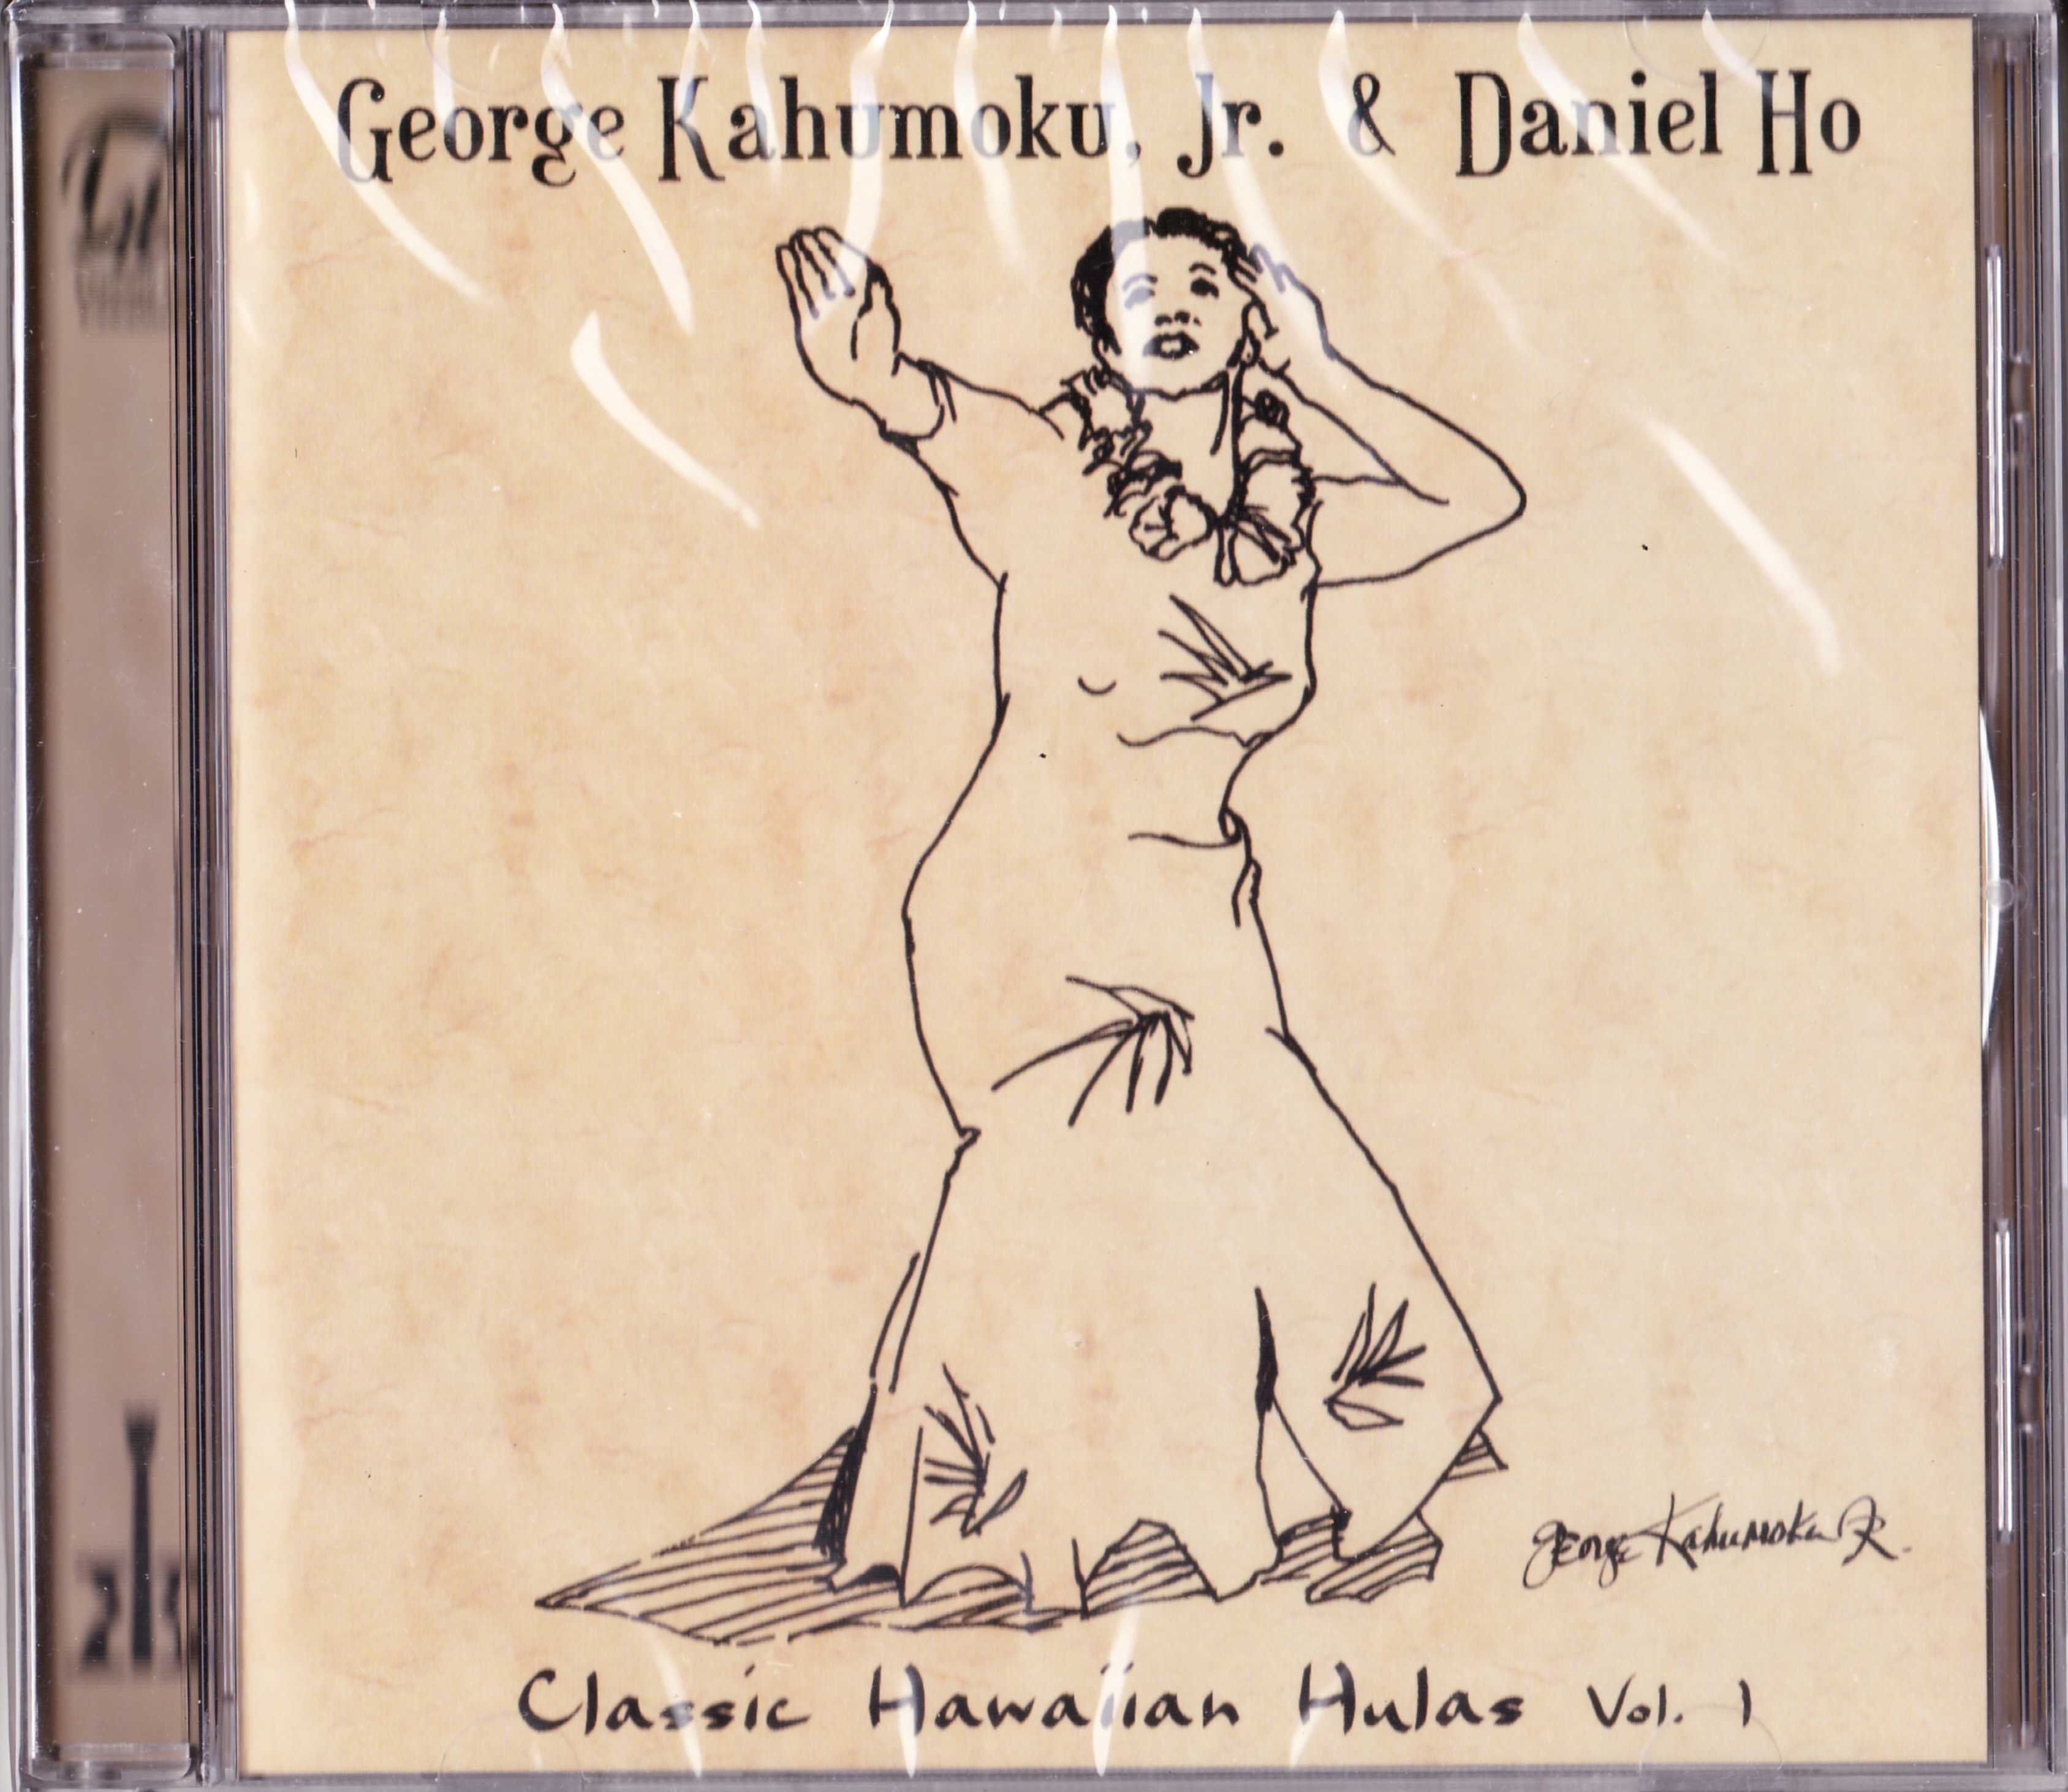 George Kahumoku, Jr. & Daniel Ho
George Kahumoku Jr.
Classic Hawaiian Hulas Vol. 1